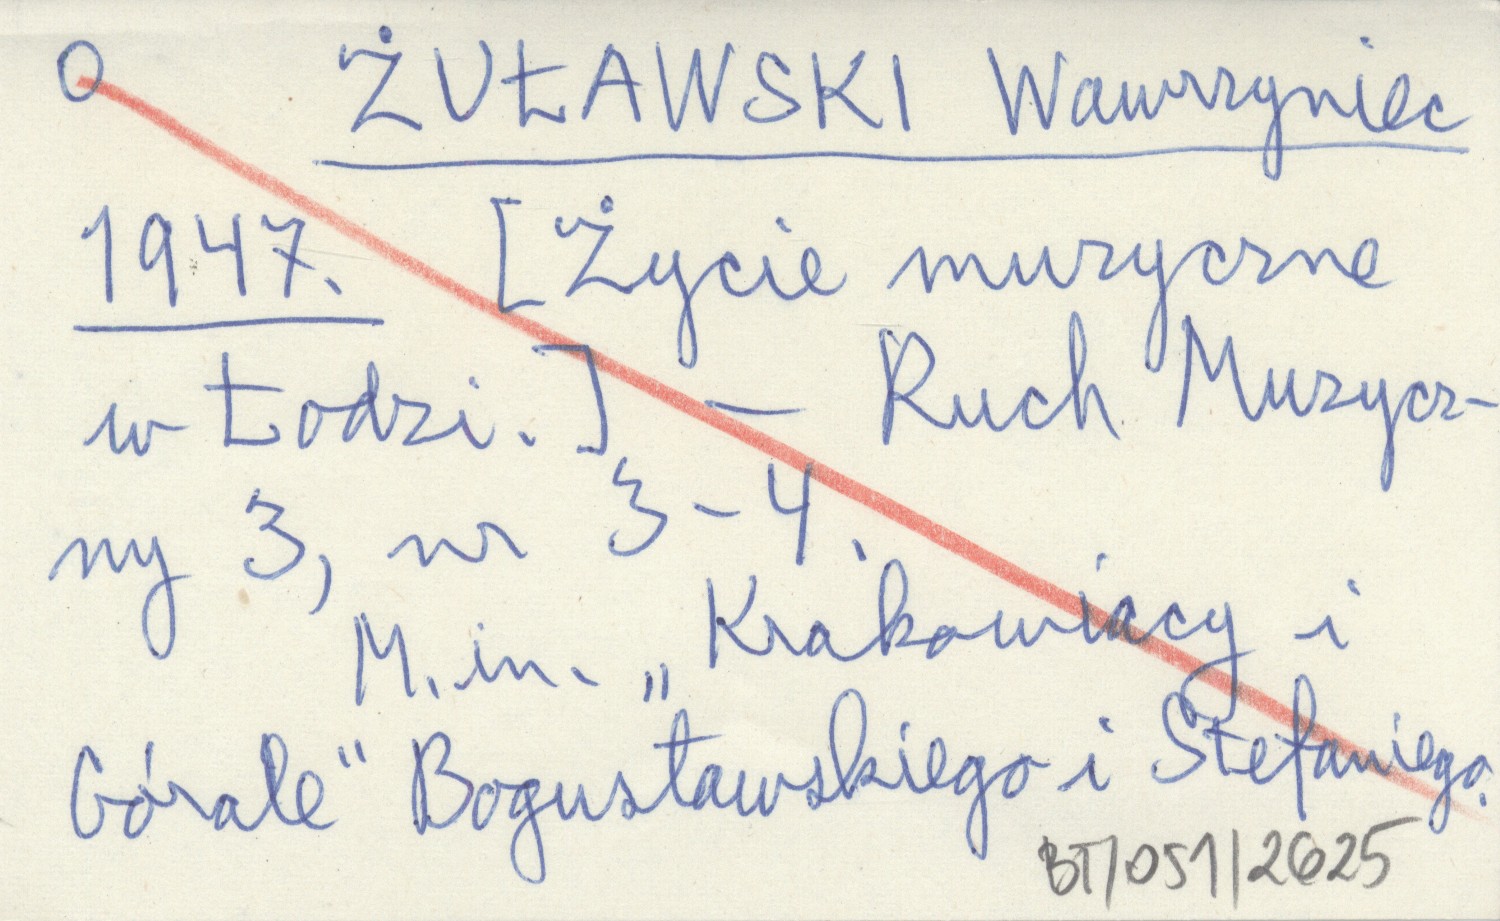 O ŻUŁAWSKI Wawrzyniec
1947. [Życie muzyczne
w Łodzi.] – Ruch Muzycz-
ny 3, nr 3-4.
M.in. „Krakowiacy i
Górale" Bogusławskiego i Stefaniego.
BT/051/2625